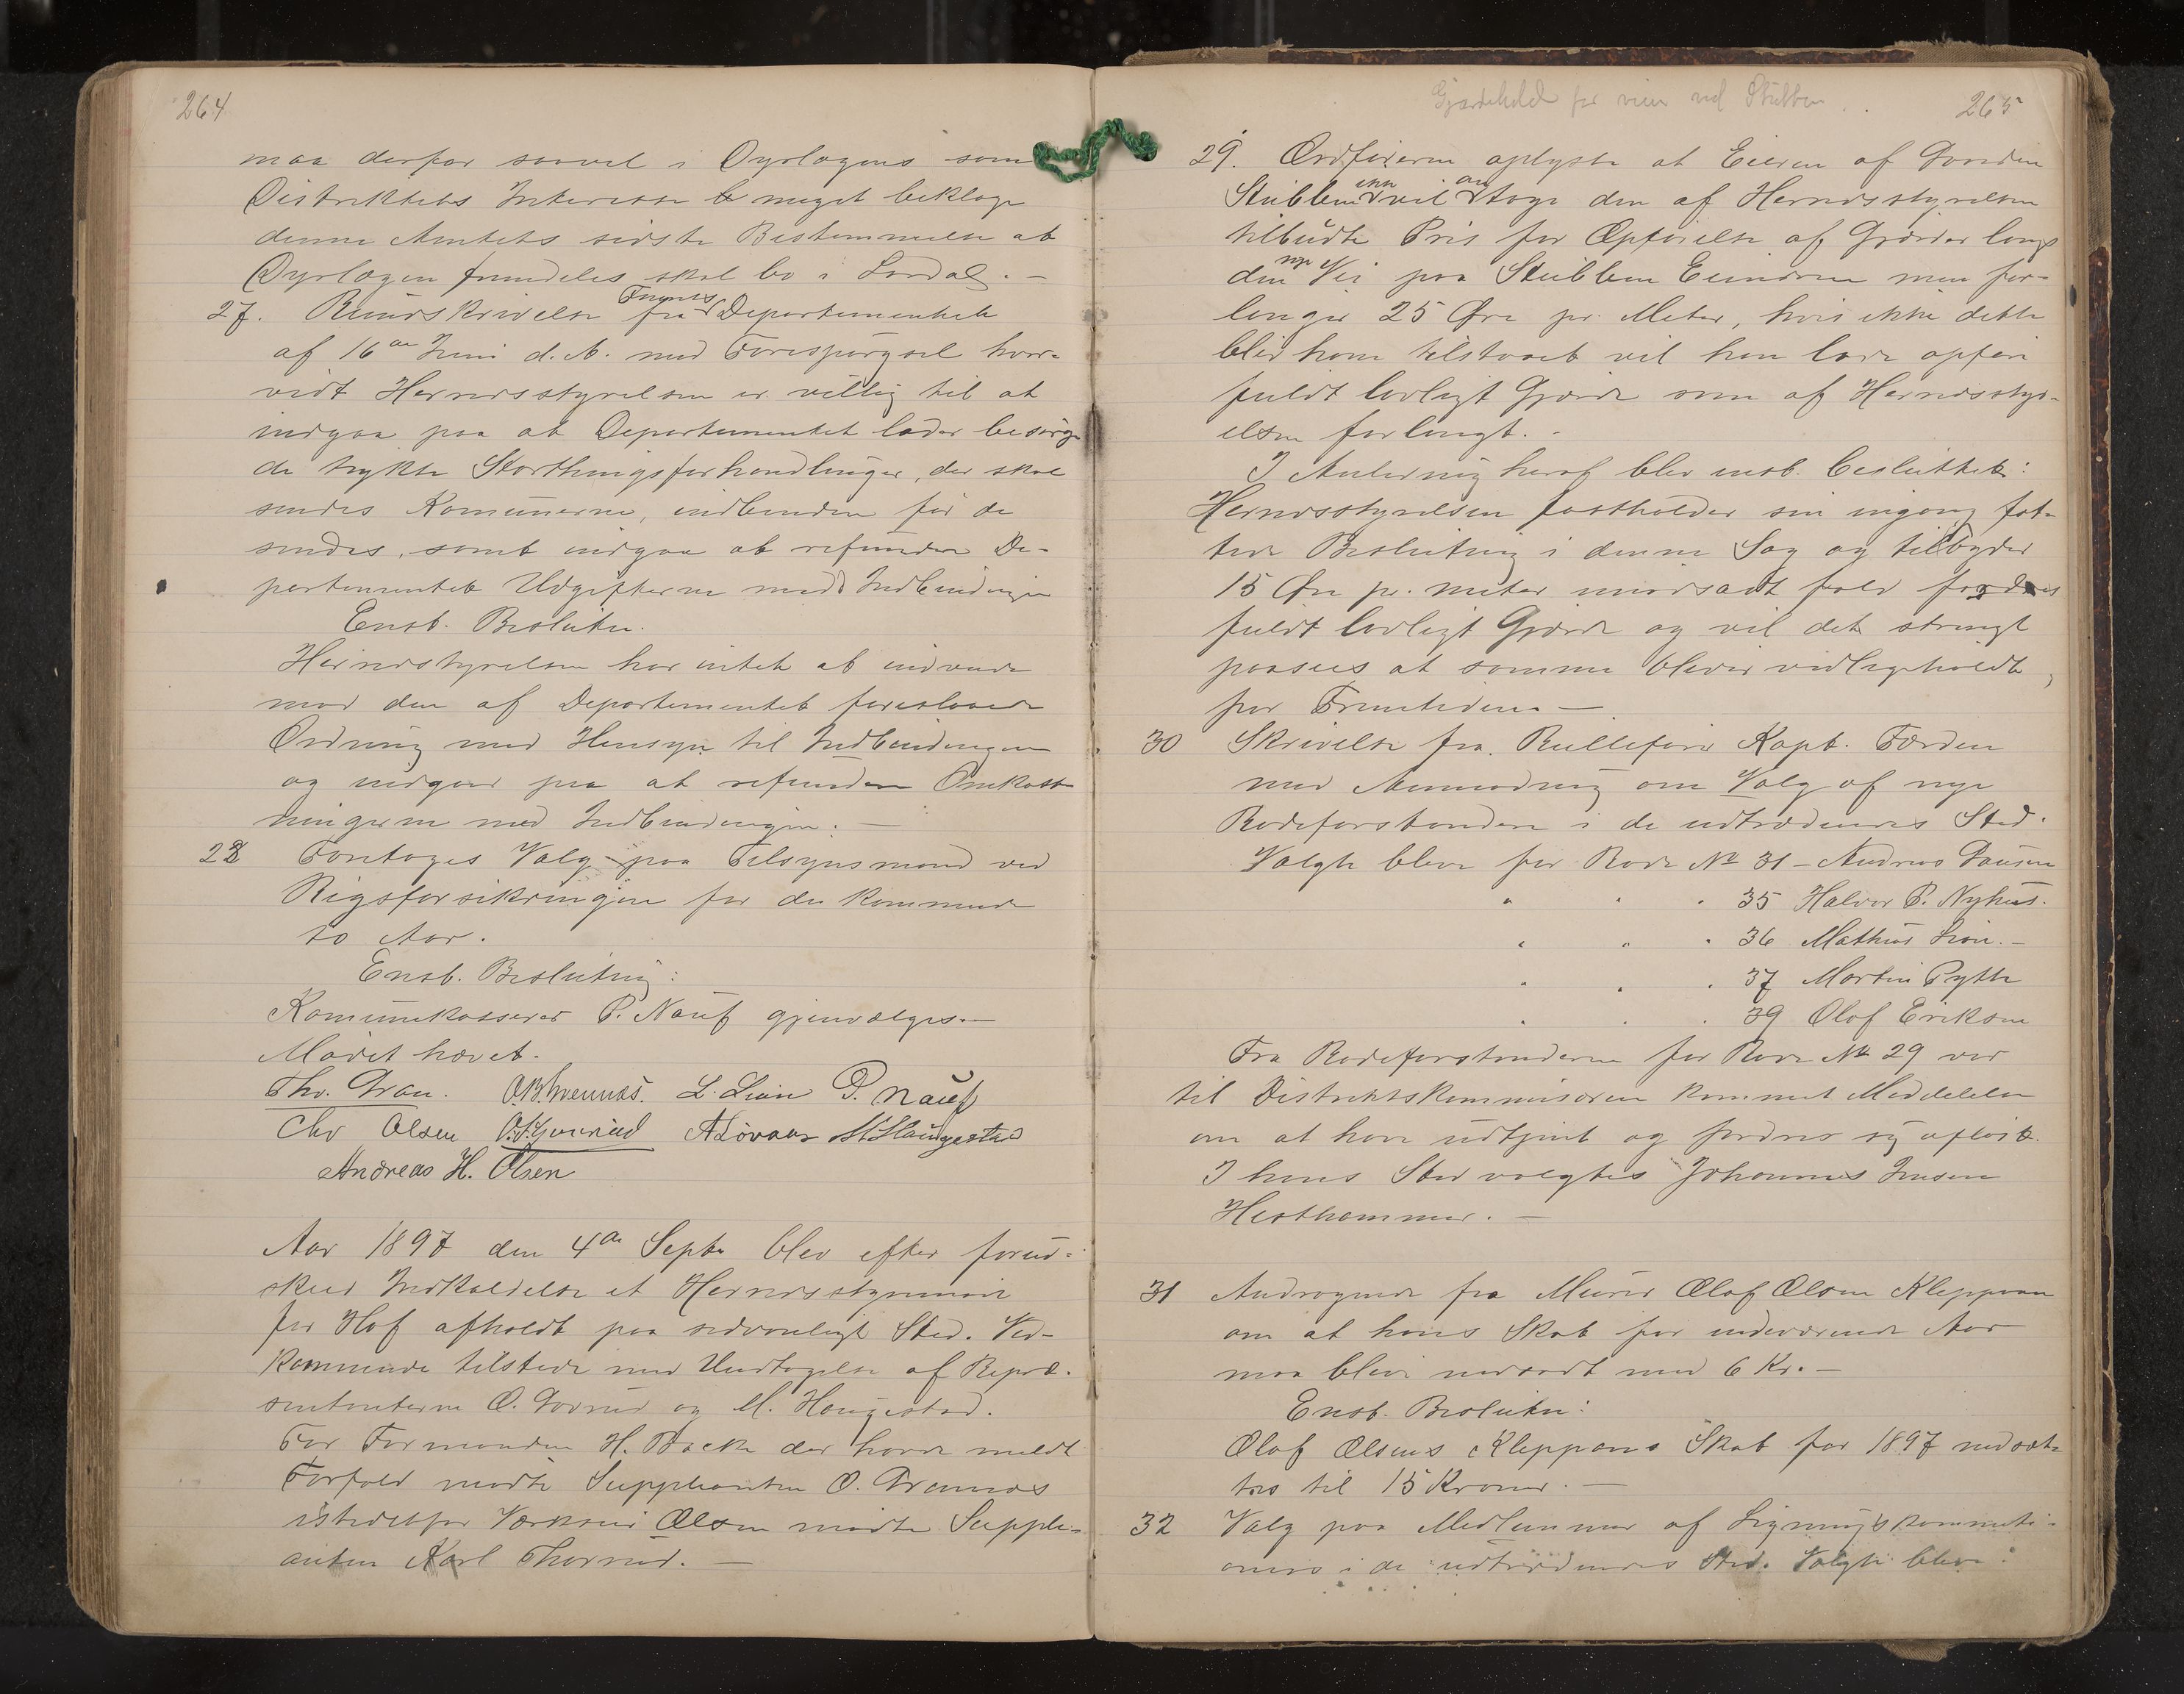 264
maa derfor saavel i Dyrlægens som
Distriktets Interesse meget beklage
denne Amtets sidste Bestemmelse at
Dyrlægen fremdeles skal bo i Lardal. —
27. Rundskrivelse fra Finants Departementet
af 16de Juni d. A. med Forespørgsel hvor-
vidt Herredsstyrelsen er villig til at
indgaa paa at Departementet lader besørge
de trykte Storthingsforhandlinger, der skal
sendes Komunerne, indbunden før de
sendes, samt indgaa at refundere De-
partementet Udgifterne med Indbindingen
Enst. Beslutn.
Herredstyrelsen har intet at indvende
mod den af Departementet foreslaaede
Ordning med Hensyn til Indbindingen
og indgaar paa at refundere Omkost-
ningerne med Indbindingen. —
28 Foretoges Valg paa Tilsynsmand ved
Rigsforsikringen for de kommende
to Aar.
Enst. Beslutning:
Komunekasserer P. Nauf gjenvælges. —
Mødet hævet.
Thv. Gran. L. Lian P. Nauf
Chr Olsen A Løvaas M Haugestad
Andreas H. Olsen
Aar 1897 den 4de Septr blev efter forud-
skeed Indkaldelse et Herredsstyremøde
for Hof afholdt paa sedvanligt Sted. Ved-
kommende tilstede med Undtagelse af Repræ-
sentanterne O. Govrud og M. Haugestad.
For Formanden H. Backe der havde meldt
Forfald mødte Suppleanten O. Grennes
istedetfor Værkseier Olsen mødte Supple-
anten Karl Thorrud. —
Gjærdehold for veien ved Stubben
265
29. Ordføreren oplyste at Eieren af Gaarden
Stubben ikke vil antage den af Herredsstyrelsen
tilbudte Pris for Opførelse af Gjærder langs
den nye Vei paa Stubben Eiendom men for-
langer 25 Øre pr. Meter, hvis ikke dette
bliv ham tilstaaet vil han lade opføre
fuldt lovligt Gjærde som af Herredsstyr-
elsen forlangt. -
I Anledning heraf blev enst. besluttet:
Herredsstyrelsen fastholder sin engang fat-
tede Beslutning i denne Sag og tilbyder
15 Øre pr. meter modsadt fald fordres
fuldt lovligt Gjærde og vil det strengt
paasees at samme bliver vedligeholdt,
for Fremtiden. —
30 Skrivelse fra Rullefører Kapt. Færden
med Anmodning om Valg af nye
Rodeforstandere i de udtrædendes Sted.
Valgte bleve for Rode No 31 - Andreas Paulsen
" " " 35 Halvor P. Nyhus.
" " " 36 Mathias Lian. -
" " " 37 Martin Pytte
" " " 39 Olof Eriksen
Fra Rodeforstanderen for Rode No 29 var
til Distriktskommisæren kommet Meddelelse
om at have udtjent og fordrer sig afløst.
I hans Sted valgtes Johannes Jensen
Hesthammer. —
31 Andragende fra Murer Olaf Olsen Kleppan
om at hans Skat for indeværende Aar
maa blive nedsadt med 6 Kr. —
Enst. Beslutn:
Olaf Olsens Kleppans Skat for 1897 nedsæt-
tes til 15 Kroner. —
32 Valg paa Medlemmer af Ligningskommisi-
onens i de udtrædendes Sted. Valgte bleve: